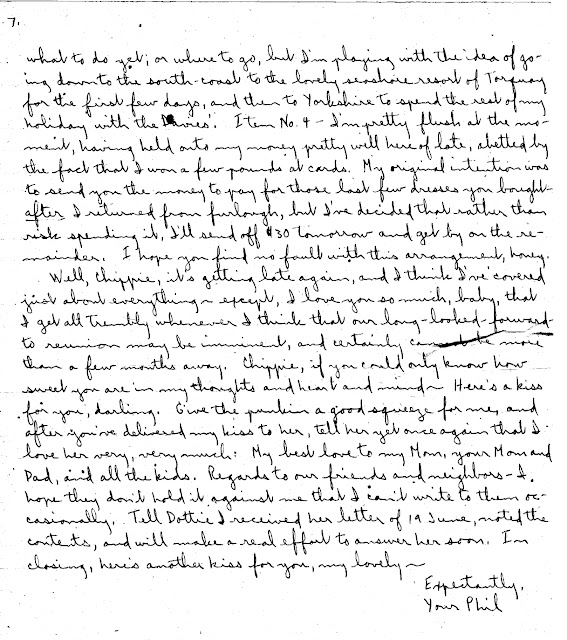 7.
what to do yet; or where to go, but I'm playing with the idea of go-
ing down to the south-coast to the lovely seashore resort of Torquay
for the first few days, and then to Yorkshire to spend the rest of my
holiday with the Davies'. Item No. 4 - I'm pretty flush at the mo-
ment, having held onto my money pretty well here of late, abetted by
the fact that I won a few pounds at cards. My original intention was
to send you the money to pay for those last few dresses you bought
after I returned from furlough, but I've decided that rather than
risk spending it, I'll send off $30 tomorrow and get by on the re-
mainder. I hope you find no fault with this arrangement, honey.
Well, Chippie, it's getting late again, and I think I've covered
just about everything ~ except, I love you so much, baby, that
I get all trembly whenever I think that our long-looked-forward-
to reunion may be imminent, and certainly cannot be more
than a few months away. Chippie, if you could only know how
sweet you are in my thoughts and heart and mind ~ Here's a kiss
for you, darling. Give the punkin a good squeeze for me, and
after you've delivered my kiss to her, tell her yet once again that I
love her very, very much: My best love to my Mom, your Mom and
Dad, and all the kids. Regards to our friends and neighbors - I
hope they don't hold it against me that I can't write to them oc-
casionally. Tell Dottie I received her letter of 19 June, noted the
contents, and will make a real effort to answer her soon. I'm
closing, here's another kiss for you, my lovely ~
Expectantly,
Your Phil